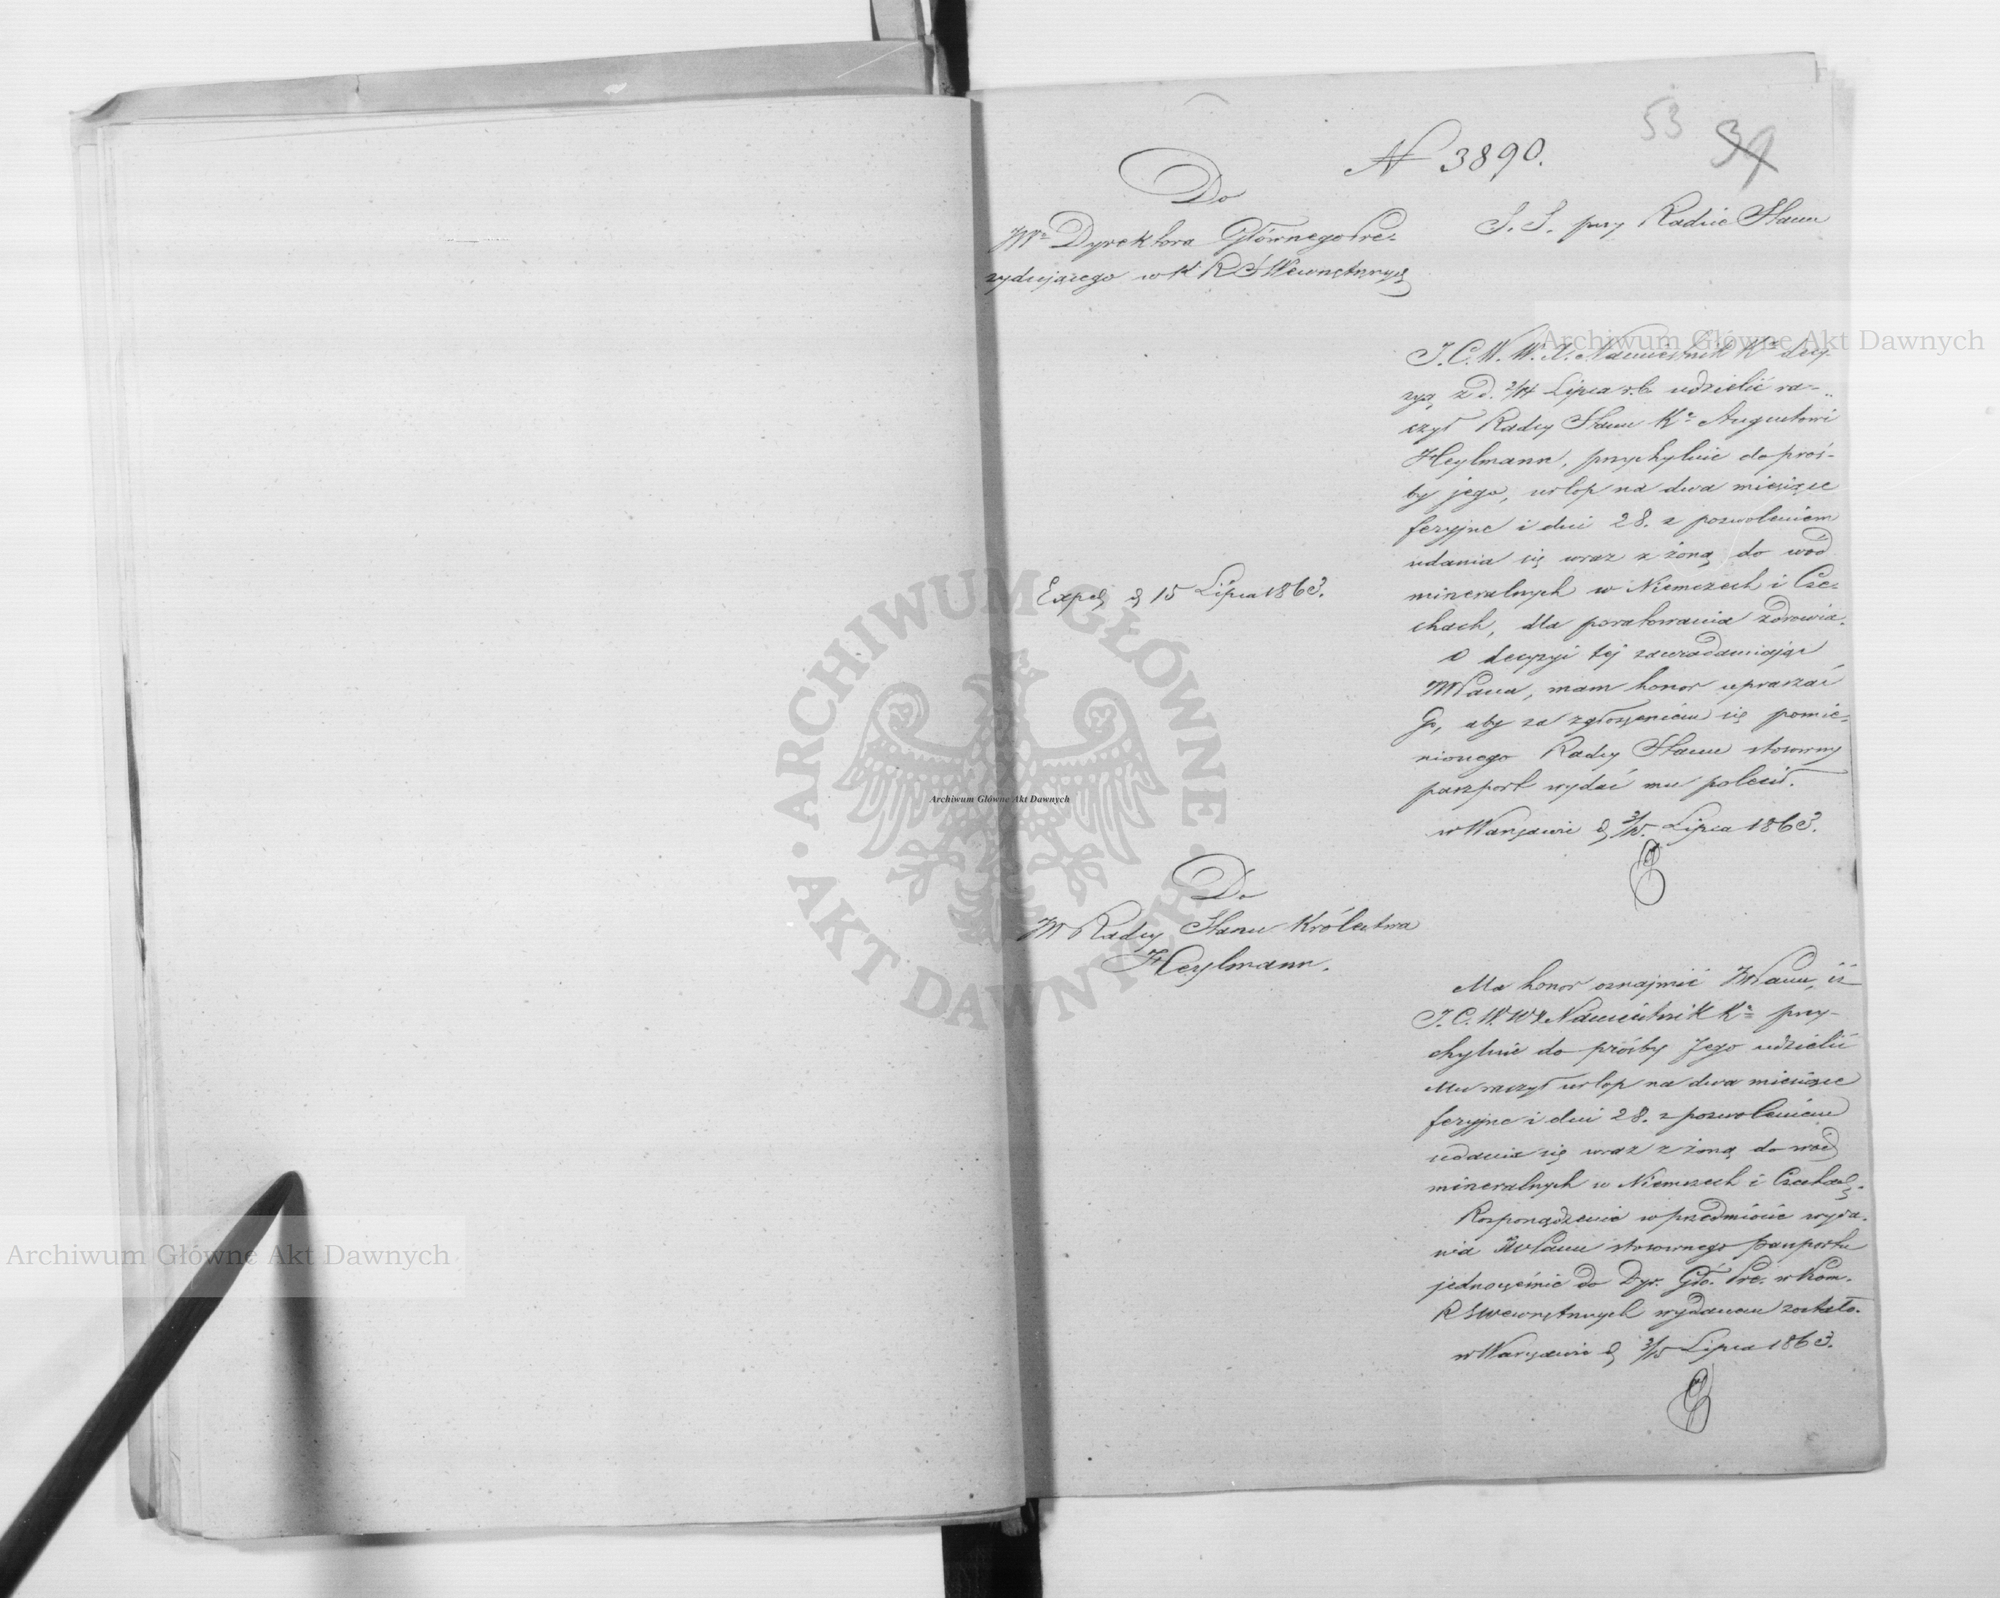 53 39
N 3890.
Do
JW. Dyrektora Głównego Pre-
zydującego w K R S Wewnętrznych
S. S. przy Radzie Stanu
J. C. W. W. X. Namiestnik Kr. decy-
zyą z d. 2/14 Lipca r. b. udzielić ra-
czył Radcy Stanu Kr. Augustowi
Heylmann, przychylnie do proś-
by jego, urlop na dwa miesiące
feryjne i dni 28. z pozwoleniem
udania się wraz z żoną do wód
mineralnych w Niemczech i Cze-
chach, dla poratowania zdrowia.
O decyzyi tej zawiadamiając
JWPana, mam honor upraszać
Go, aby za zgłoszeniem się pomie-
nionego Radcy Stanu stosowny
paszport wydać mu polecił.
w Warszawie d. 3/15. Lipca 1863.
Exped. d. 15 Lipca 1863.
Do
JW Radcy Stanu Królestwa
Heylmann.
Ma honor oznajmić JWPanu, iż
J. C. W. W X Namiestnik Kr. przy-
chylnie do prośby Jego udzielić
Mu raczył urlop na dwa miesiące
feryjne i dni 28. z pozwoleniem
udania się wraz z żoną do wód
mineralnych w Niemczech i Czechach.
Rozporządzenie w przedmiocie wyda-
nia JWPanu stosownego paszportu
jednocześnie do Dyr. Głó. Pre. w Kom.
R S Wewnętrznych wydanem zostało.
w Warszawie d. 3/15 Lipca 1863.
Archiwum Główne Akt Dawnych
Archiwum Główne Akt Dawnych
Archiwum Główne Akt Dawnych
ARCHIWUM GŁÓWNE
AKT DAWNYCH